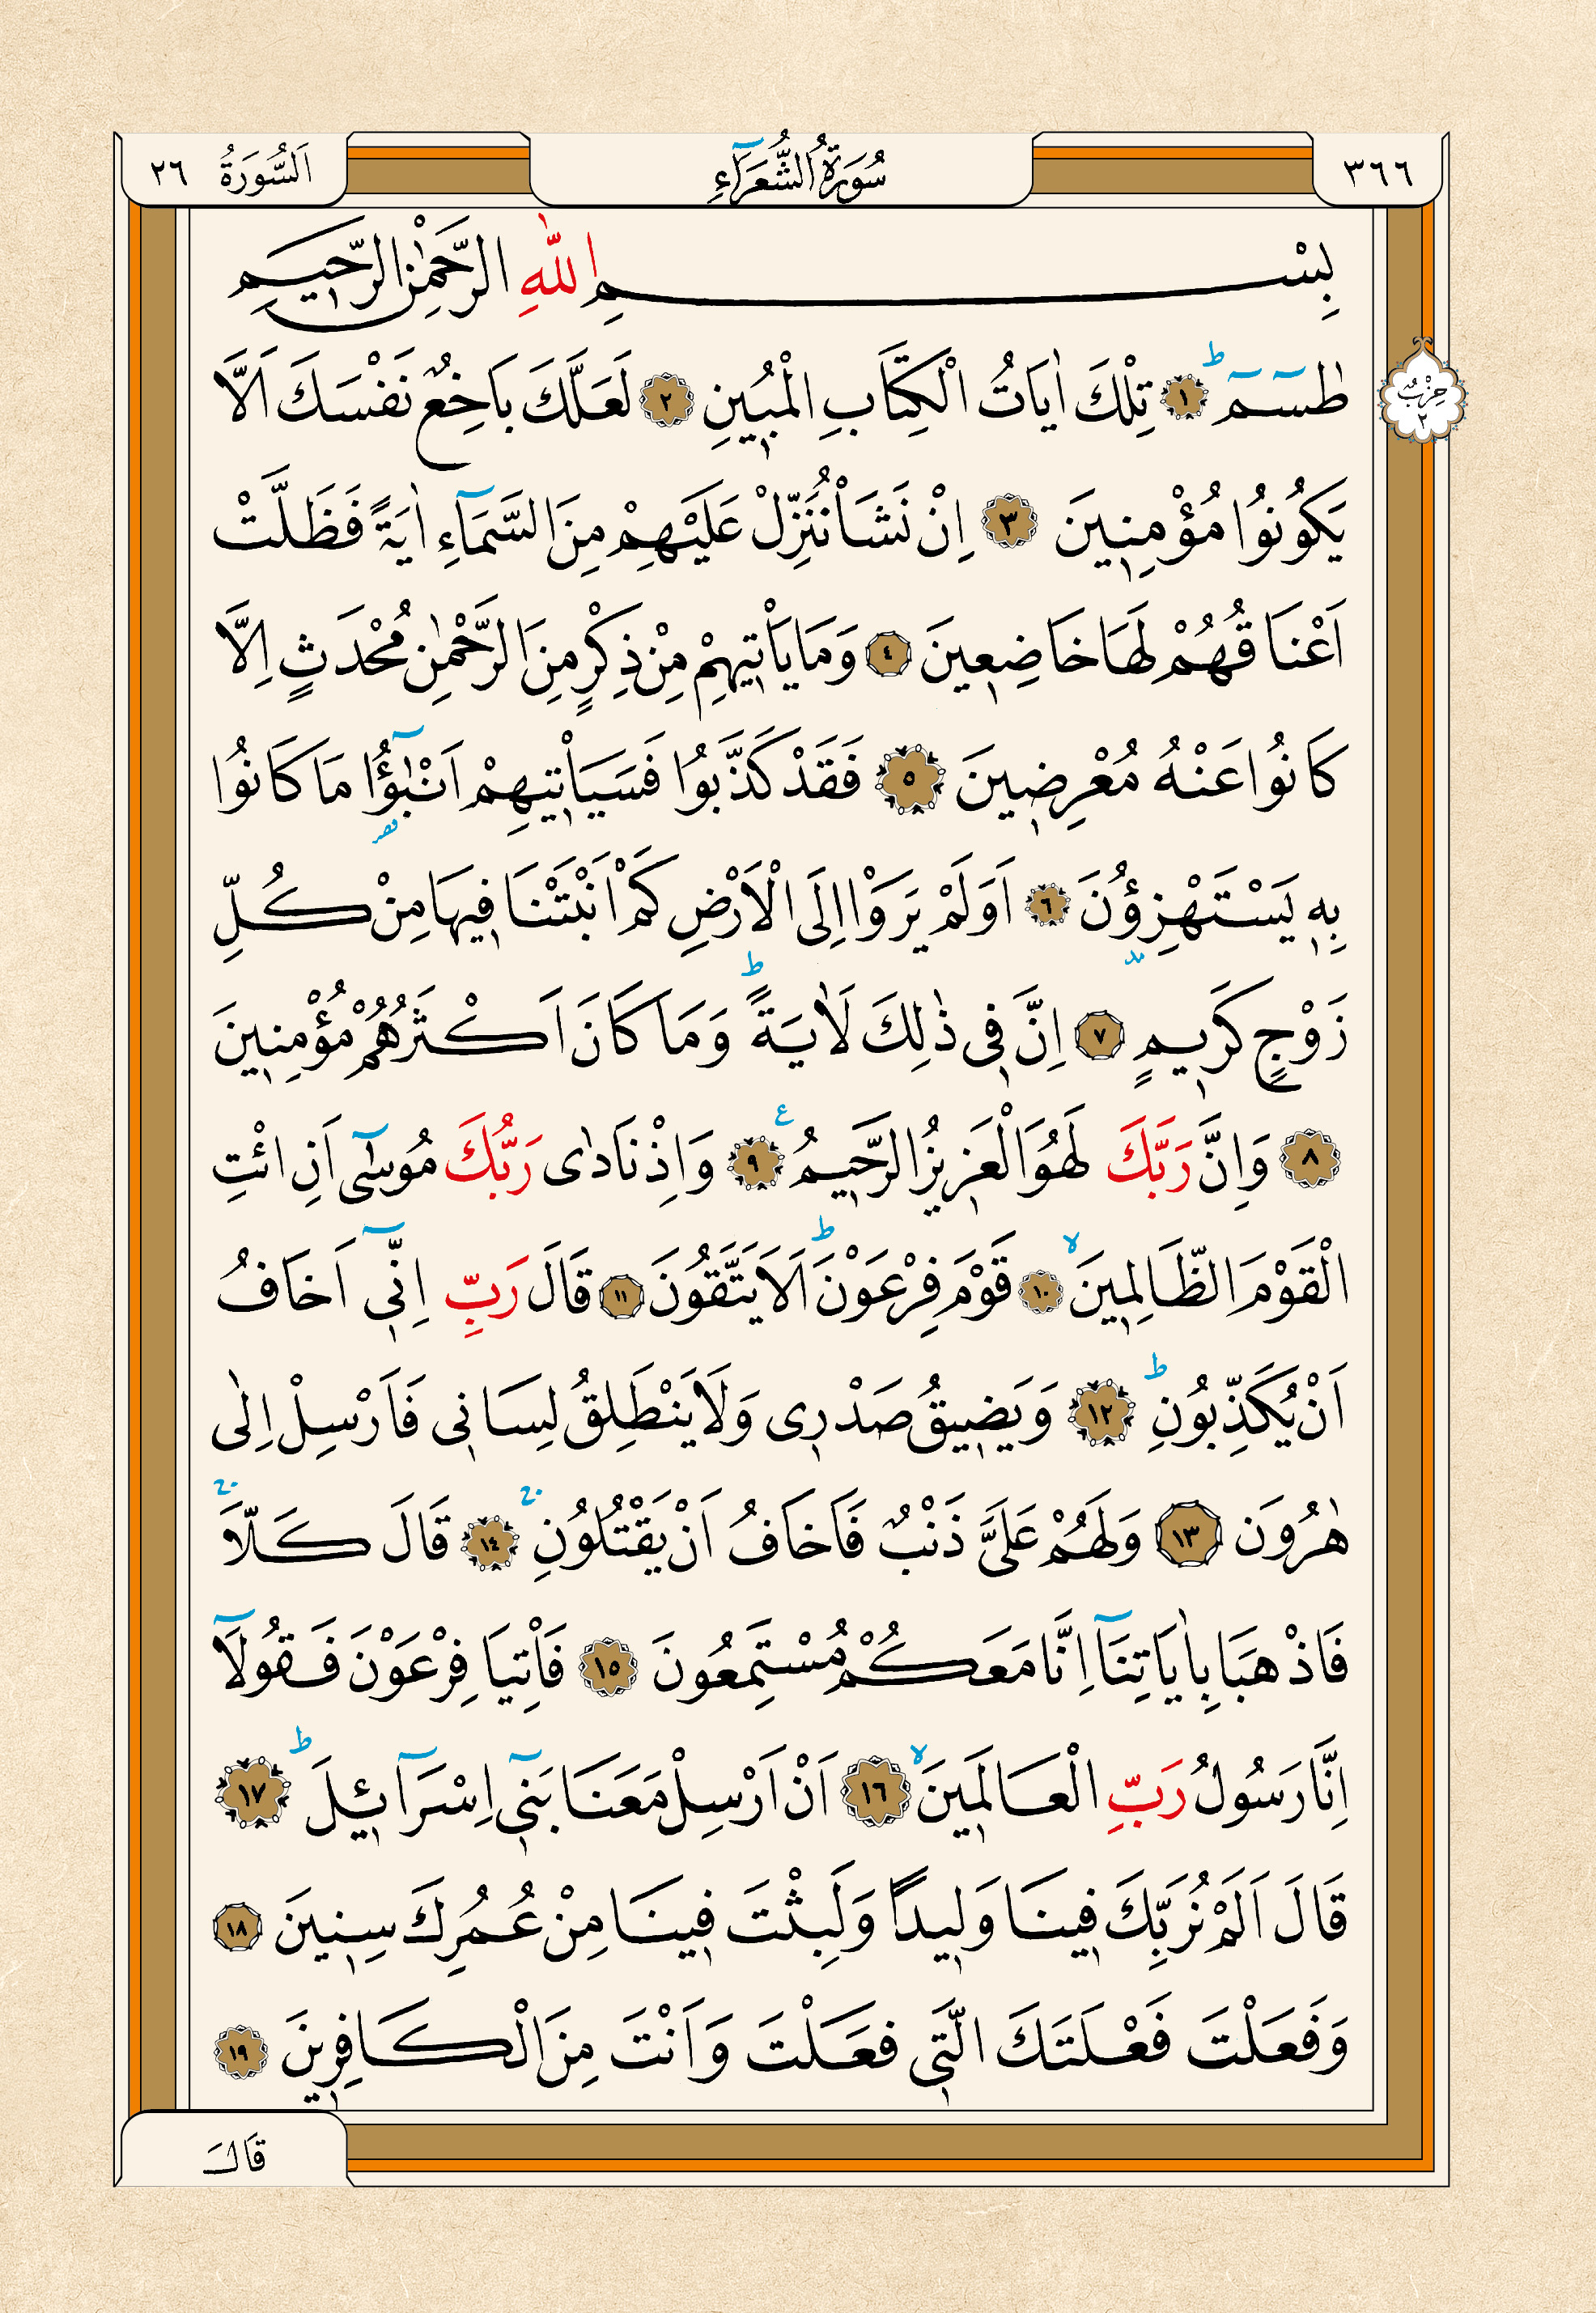 ٣٦٦ سُورَةُ الشُّعَرَٓاءِ اَلسُّورَةُ ٢٦
بِسْمِ اللّٰهِ الرَّحْمٰنِ الرَّحٖيمِ
حِزْبٌ ٢
طٰسٓمٓ ؕ ١ تِلْكَ اٰيَاتُ الْكِتَابِ الْمُبٖينِ ٢ لَعَلَّكَ بَاخِعٌ نَفْسَكَ اَلَّا
يَكُونُوا مُؤْمِنٖينَ ٣ اِنْ نَشَأْ نُنَزِّلْ عَلَيْهِمْ مِنَ السَّمَٓاءِ اٰيَةً فَظَلَّتْ
اَعْنَاقُهُمْ لَهَا خَاضِعٖينَ ٤ وَمَا يَأْتٖيهِمْ مِنْ ذِكْرٍ مِنَ الرَّحْمٰنِ مُحْدَثٍ اِلَّا
كَانُوا عَنْهُ مُعْرِضٖينَ ٥ فَقَدْ كَذَّبُوا فَسَيَأْتٖيهِمْ اَنْبٰٓؤُا مَا كَانُوا
بِهٖ يَسْتَهْزِؤُنَ ٦ اَوَلَمْ يَرَوْا اِلَى الْاَرْضِ كَمْ اَنْبَتْنَا فٖيهَا مِنْ كُلِّ
زَوْجٍ كَرٖيمٍ ٧ اِنَّ فٖى ذٰلِكَ لَاٰيَةً ؕ وَمَا كَانَ اَكْثَرُهُمْ مُؤْمِنٖينَ
٨ وَاِنَّ رَبَّكَ لَهُوَ الْعَزٖيزُ الرَّحٖيمُ ع ٩ وَاِذْ نَادٰى رَبُّكَ مُوسٰٓى اَنِ ائْتِ
الْقَوْمَ الظَّالِمٖينَ لا ١٠ قَوْمَ فِرْعَوْنَ ؕ اَلَا يَتَّقُونَ ١١ قَالَ رَبِّ اِنّٖٓى اَخَافُ
اَنْ يُكَذِّبُونِ ؕ ١٢ وَيَضٖيقُ صَدْرٖى وَلَا يَنْطَلِقُ لِسَانٖى فَاَرْسِلْ اِلٰى
هٰرُونَ ١٣ وَلَهُمْ عَلَىَّ ذَنْبٌ فَاَخَافُ اَنْ يَقْتُلُونِ ۚ ١٤ قَالَ كَلَّا ۚ
فَاذْهَبَا بِاٰيَاتِنَٓا اِنَّا مَعَكُمْ مُسْتَمِعُونَ ١٥ فَأْتِيَا فِرْعَوْنَ فَقُولَٓا
اِنَّا رَسُولُ رَبِّ الْعَالَمٖينَ لا ١٦ اَنْ اَرْسِلْ مَعَنَا بَنٖٓى اِسْرَٓائٖيلَ ؕ ١٧
قَالَ اَلَمْ نُرَبِّكَ فٖينَا وَلٖيدًا وَلَبِثْتَ فٖينَا مِنْ عُمُرِكَ سِنٖينَ ١٨
وَفَعَلْتَ فَعْلَتَكَ الَّتٖى فَعَلْتَ وَاَنْتَ مِنَ الْكَافِرٖينَ ١٩
قَالَ